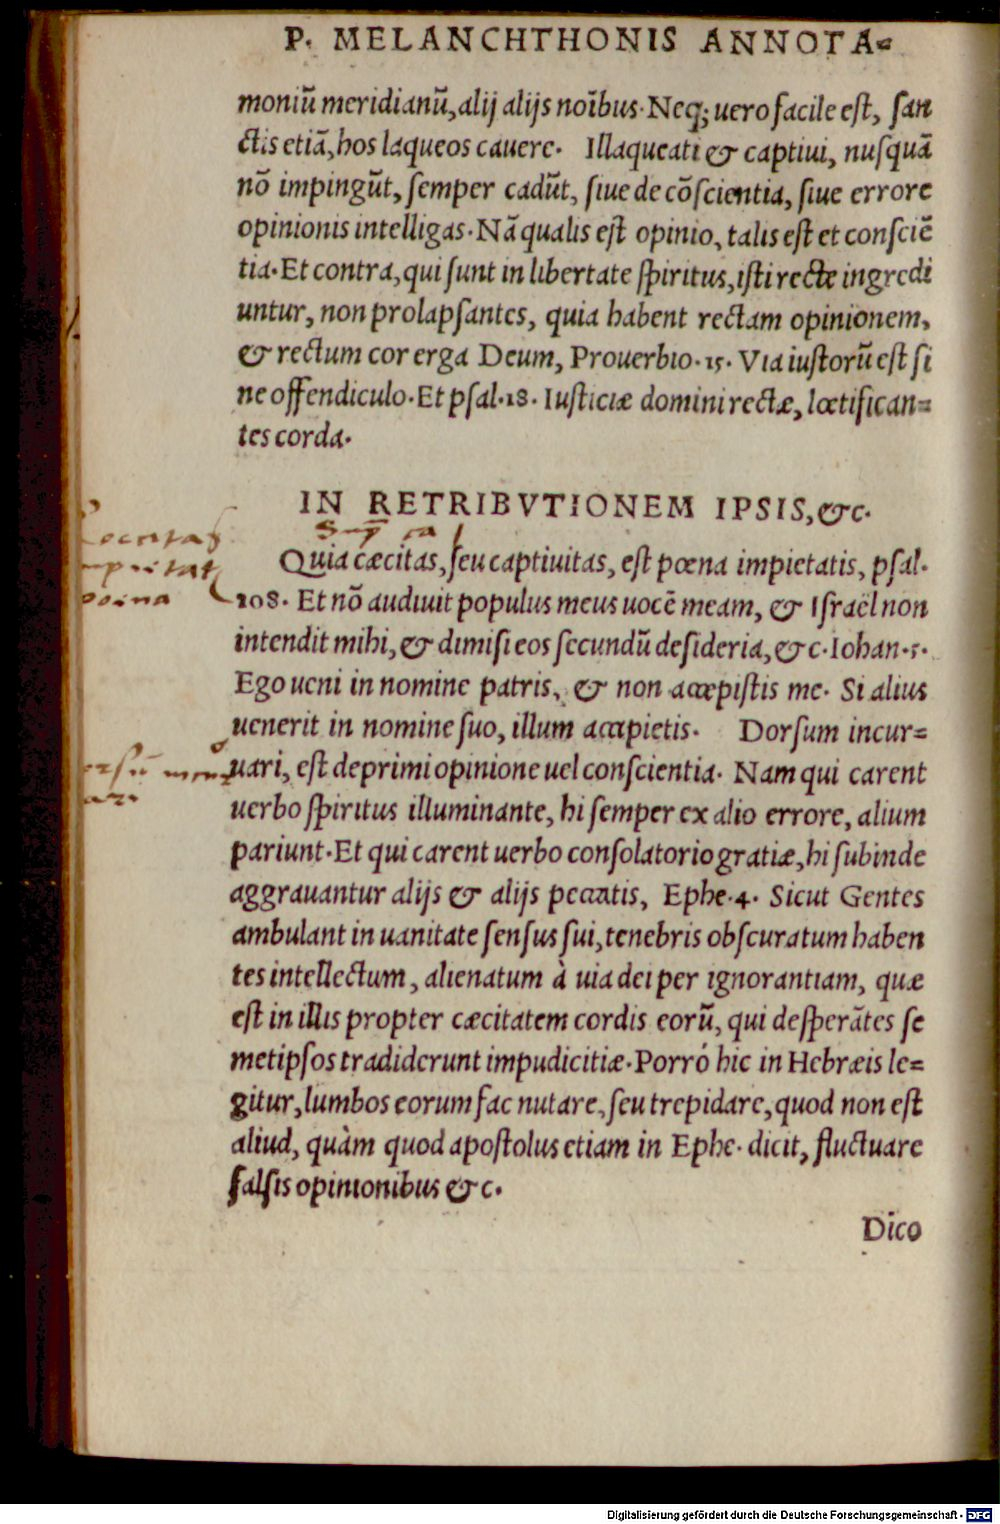 P. MELANCHTHONIS ANNOTA=
moniũ meridianũ, alij alijs noĩbus. Neq; uero facile est, san
ctis etiã, hos laqueos cauere. Illaqueati & captiui, nusquã
nõ impingũt, semper cadũt, siue de cõscientia, siue errore
opinionis intelligas. Nã qualis est opinio, talis est et consciẽ
tia. Et contra, qui sunt in libertate spiritus, isti recte ingredi
untur, non prolapsantes, quia habent rectam opinionem,
& rectum cor erga Deum, Prouerbio. 15. Via iustorũ est si
ne offendiculo. Et psal. 18. Iusticiæ domini rectæ, lœtifican=
tes corda.
IN RETRIBVTIONEM IPSIS, &c.
Quia cæcitas, seu captiuitas, est pœna impietatis, psal.
108. Et nõ audiuit populus meus uocẽ meam, & Israël non
intendit mihi, & dimisi eos secundũ desideria, &c. Iohan. 5.
Ego ueni in nomine patris, & non accepistis me. Si alius
uenerit in nomine suo, illum accipietis. Dorsum incur=
uari, est deprimi opinione uel conscientia. Nam qui carent
uerbo spiritus illuminante, hi semper ex alio errore, alium
pariunt. Et qui carent uerbo consolatorio gratiæ, hi subinde
aggrauantur alijs & alijs peccatis, Ephe. 4. Sicut Gentes
ambulant in uanitate sensus sui, tenebris obscuratum haben
tes intellectum, alienatum à uia dei per ignorantiam, quæ
est in illis propter cæcitatem cordis eorũ, qui desperãtes se
metipsos tradiderunt impudicitiæ. Porró hic in Hebræis le=
gitur, lumbos eorum fac nutare, seu trepidare, quod non est
aliud, quàm quod apostolus etiam in Ephe. dicit, fluctuare
falsis opinionibus &c.
Dico
poina
Digitalisierung gefördert durch die Deutsche Forschungsgemeinschaft - DFG